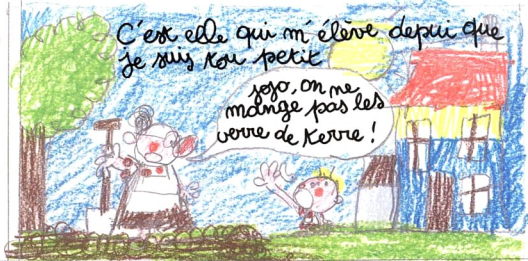 C'est elle qui m'élève depui que
je suis tou petit
jojo, on ne
mange pas les
verre de terre !